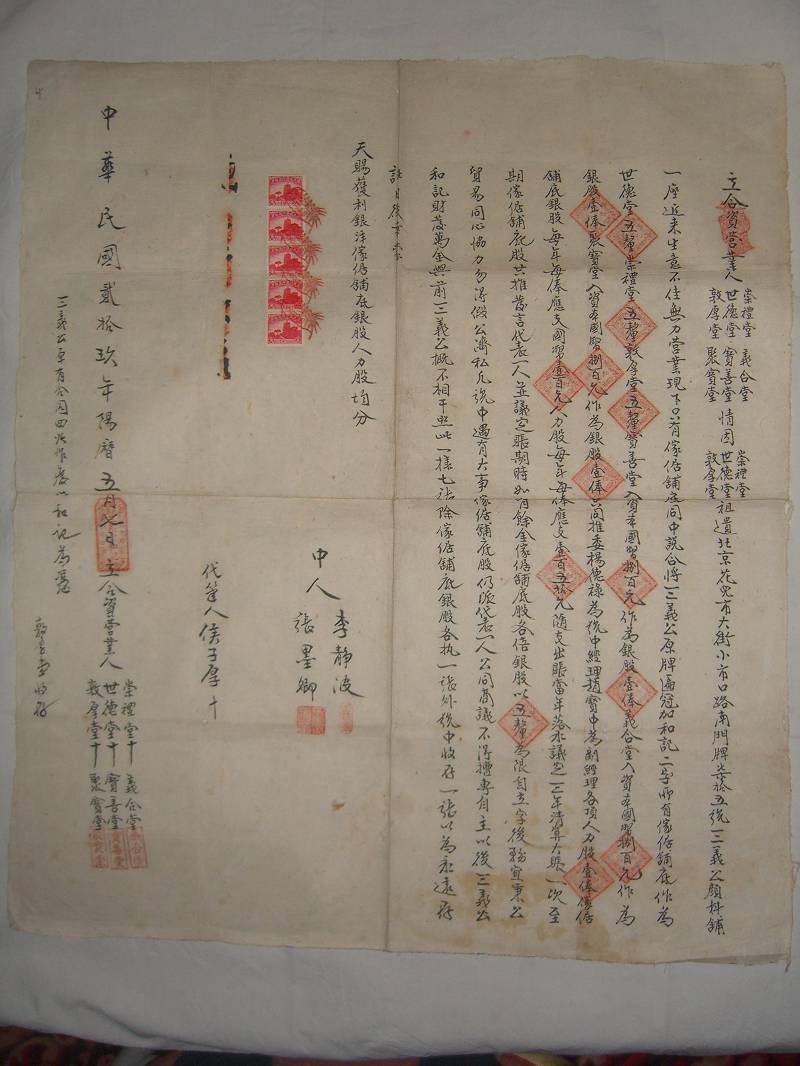 立合資營業人
崇禮堂 義合堂
世德堂 寶善堂
敦厚堂 聚寶堂
情因
崇禮堂
世德堂
敦厚堂
祖遺北京花兒市大街小市口路南門牌柒拾五號三義公顏料舖
一座近來生意不佳無力營業現下只有傢俱舖底同中說合將三義公原牌匾冠加和記二字所有傢俱舖底作為
世德堂五釐崇禮堂五釐敦厚堂五釐寶善堂入資本國幣捌百元作為銀股壹俸義合堂入資本國幣捌百元作為
銀股壹俸聚寶堂入資本國幣捌百元作為銀股壹俸共同推委楊德祿為號中經理趙寶中為副經理各項人力股壹俸傢俱
舖底銀股每年每俸應支國幣壹百元人力股每年每俸應支壹百五拾元隨支出賬當年落水議定三年清算大賬一次至
期傢俱舖底股共推發言代表一人並議定賬期時如有餘金傢俱舖底股各倍銀股以五釐為限自立字後務宜秉公
貿易同心協力勿得假公濟私凡號中遇有大事傢俱舖底股仍派代表一人公同商議不得擅專自主以後三義公
和記財發萬金與前三義公概不相干照此一樣七張除傢俱舖底銀股各执一張外號中收存一張以為永遠存
計日後幸蒙
天賜獲利銀洋傢俱舖底銀股人力股均分
中人 李靜波
張墨卿
代筆人 侯子厚 十
中華民國貳拾玖年陽曆五月七日 立合資營業人
崇禮堂十 義合堂
世德堂十 寶善堂
敦厚堂十 聚寶堂
三義公原有合同四張作廢以和記為憑